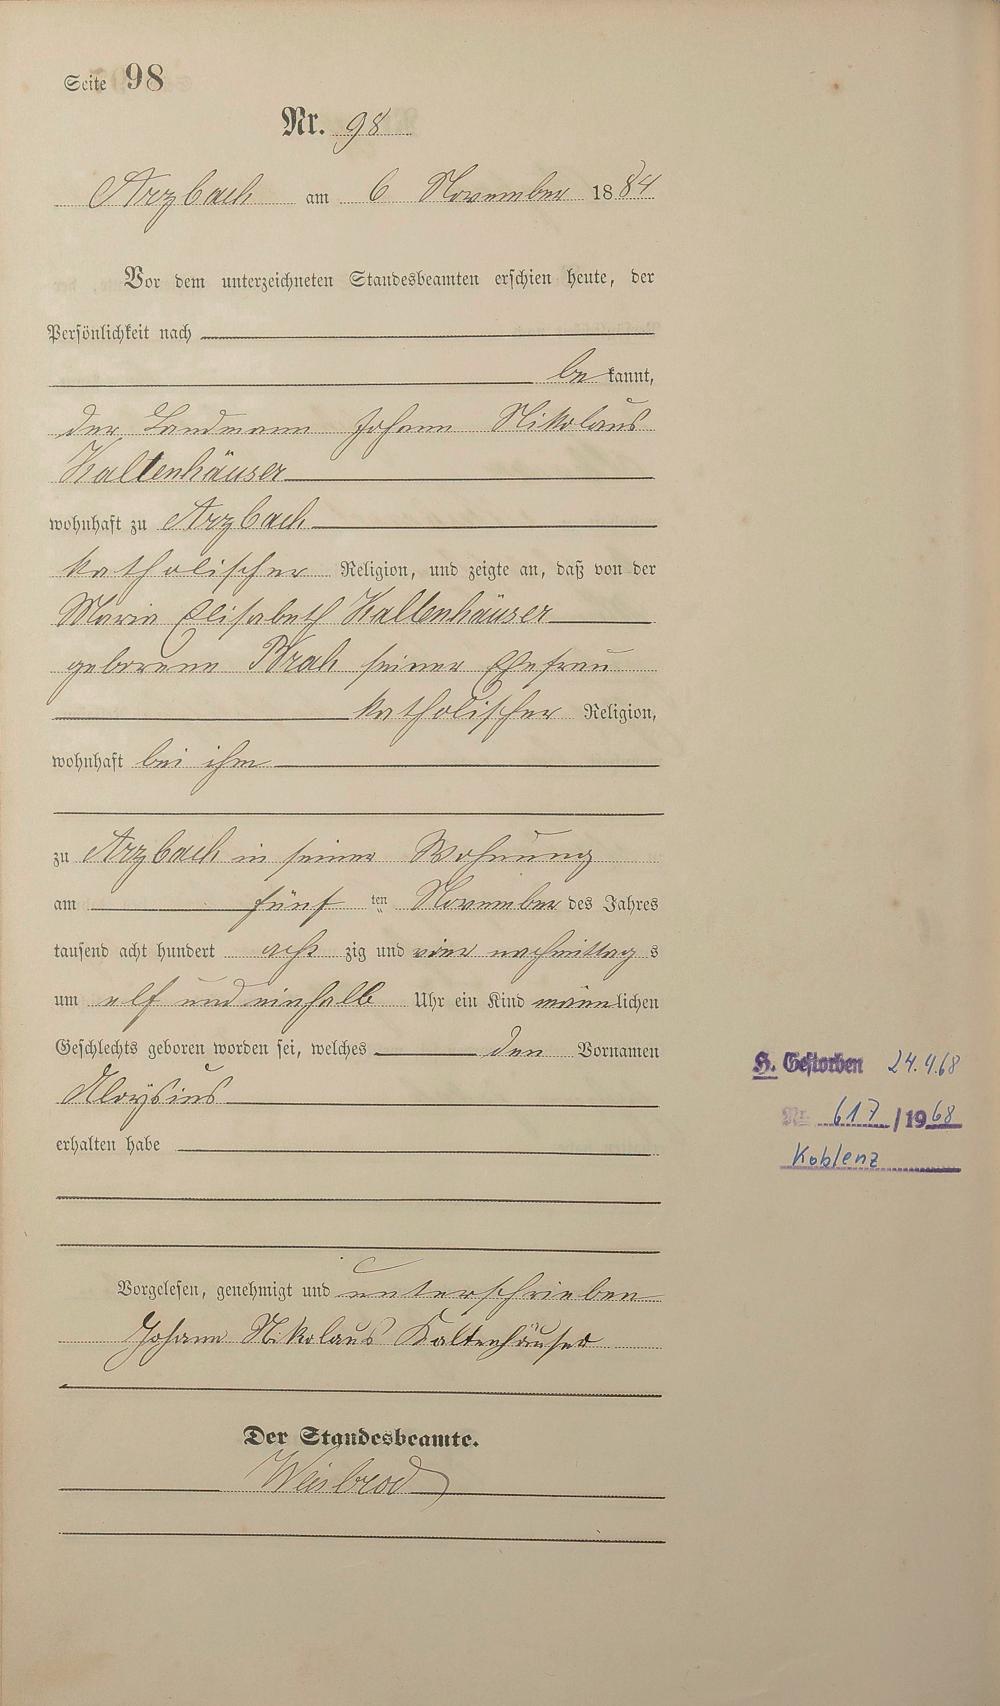 Seite 98
Nr. 98
Arzbach am 6 November 1884
Vor dem unterzeichneten Standesbeamten erschien heute, der
Persönlichkeit nach
bekannt,
der Landmann Johann Nikolaus
Kaltenhäuser
wohnhaft zu Arzbach
katholischer Religion, und zeigte an, daß von der
Maria Elisabeth Kaltenhäuser
geborene Brah seiner Ehefrau
katholischer Religion,
wohnhaft bei ihm
zu Arzbach in seiner Wohnung
am fünf ten November des Jahres
tausend acht hundert acht zig und vier nachmittag s
um elf und einhalb Uhr ein Kind männlichen
Geschlechts geboren worden sei, welches den Vornamen
Aloysius
erhalten habe
H. Gestorben 24.4.68
Nr. 617 / 1968
Koblenz
Vorgelesen, genehmigt und unterschrieben
Johann Nikolaus Kaltenhäuser
Der Standesbeamte.
Weisbrod